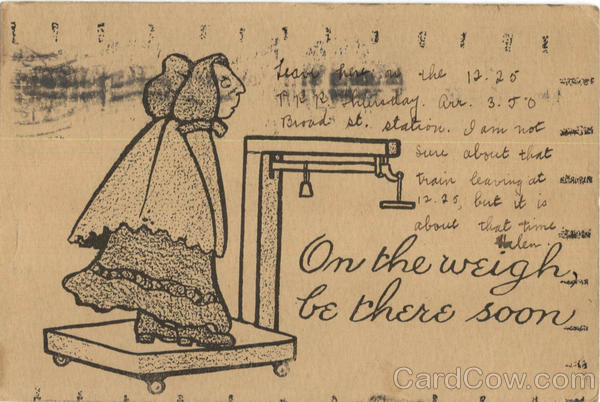 Leave here on the 12.25
P.R.R. Thursday. Arr. 3.50
Broad st. station. I am not
sure about that
train leaving at
12.25, but it is
about that time
Helen.
On the weigh,
be there soon
CardCow.com